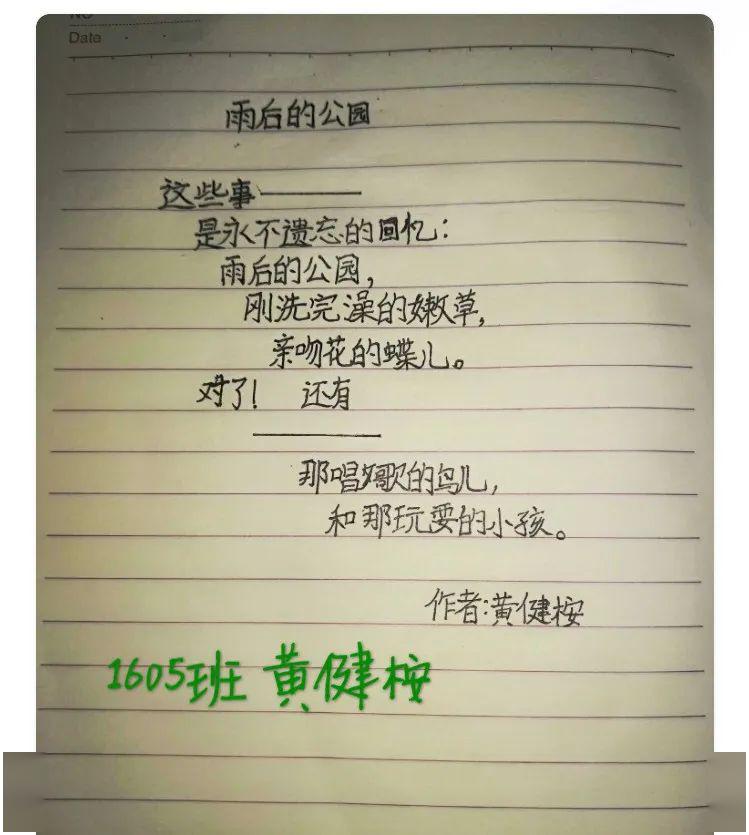 Date
雨后的公园
这些事——
是永不遗忘的回忆:
雨后的公园,
刚洗完澡的嫩草,
亲吻花的蝶儿。
对了! 还有
——
那唱歌的鸟儿,
和那玩耍的小孩。
作者:黄健桉
1605班 黄健桉